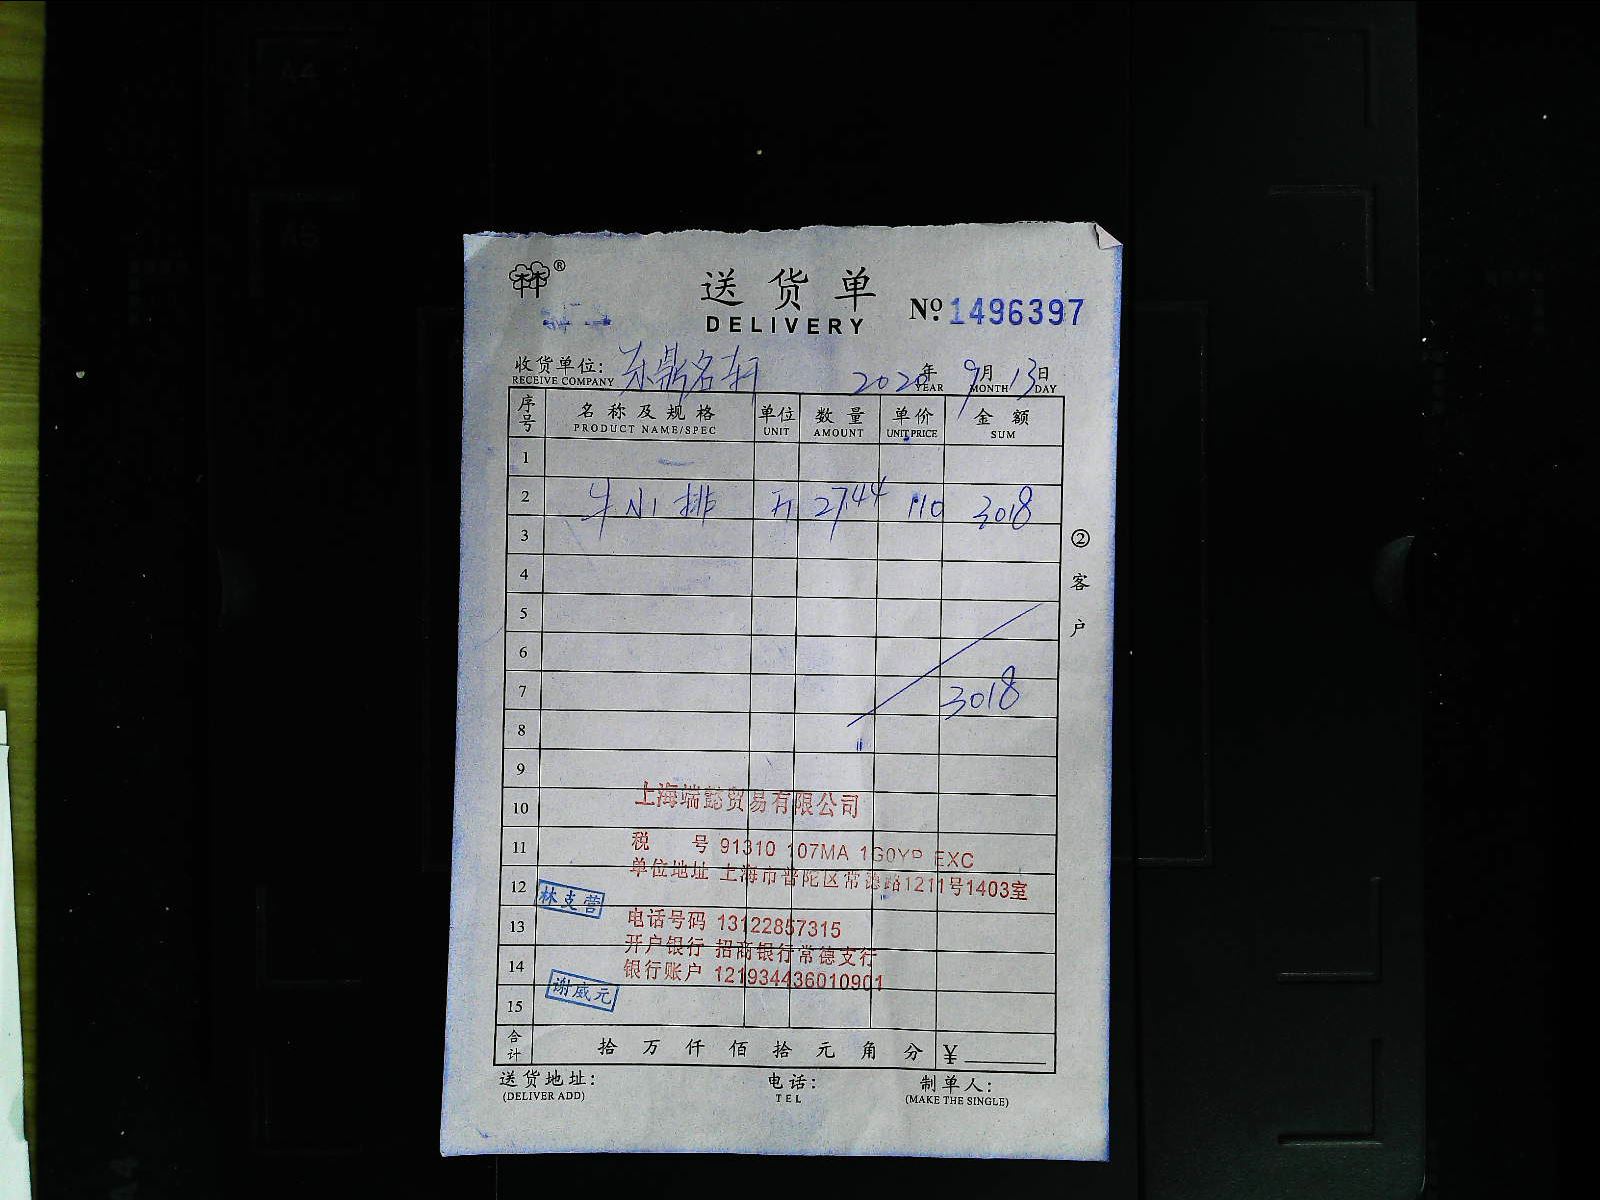 林®
送货单
DELIVERY
No. 1496397
收货单位: 东鼎名轩 2020年9月13日
RECEIVE COMPANY YEAR MONTH DAY
序号 名称及规格 单位 数量 单价 金额
PRODUCT NAME/SPEC UNIT AMOUNT UNIT PRICE SUM
1
2 牛小排 斤 27.44 110 3018
3
4
5
6
7 3018
8
9
10
11
12
13
14
15
②客户
上海端懿贸易有限公司
税号 91310 107MA 1G0YP EXC
单位地址 上海市普陀区常德路1211号1403室
林支营
电话号码 13122857315
开户银行 招商银行常德支行
银行账户 121934436010901
谢威元
合计 拾万仟佰拾元角分 ¥
送货地址: 电话: 制单人:
(DELIVER ADD) TEL (MAKE THE SINGLE)